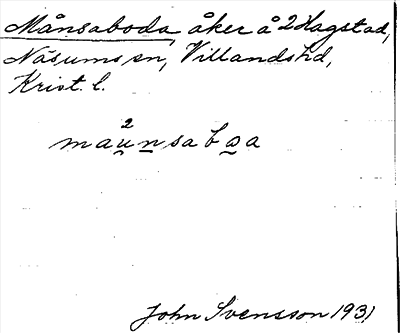 Månsaboda, åker å 2 Hagstad,
Näsums sn, Villands hd,
Krist. l.
2
maunsaboa
John Svensson 1931